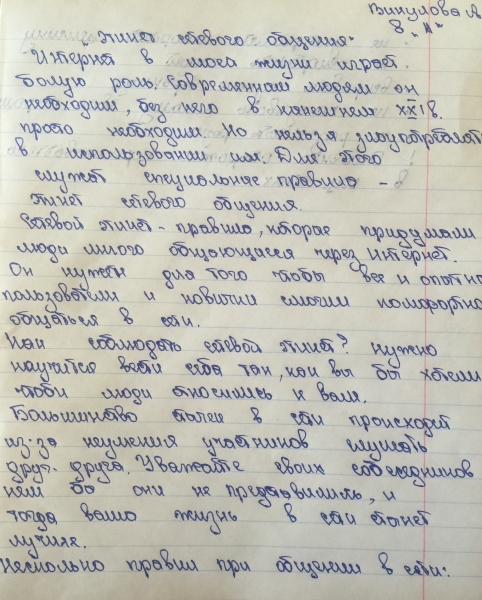 Викулова А
8 "А"
"Этикет сетевого общения"
Интернет в моей жизни играет
большую роль. Современным людям он
необходим, без него в нынешнем XXI в.
просто необходим. Но нельзя злоупотреблять
в использовании им. Для этого
служат специальные правила –
этикет сетевого общения.
Сетевой этикет - правила, которые придумали
люди много общающиеся через интернет.
Он нужен для того чтобы все и опытные
пользователи и новички смогли комфортно
общаться в сети.
Как соблюдать сетевой этикет? Нужно
научиться вести себя так, как вы бы хотели
чтобы люди относились к вам.
Большинство в сети происходит
из-за неумения участников слушать
друг друга. Уважайте своих собеседников
кем бы они не представились, и
тогда ваша жизнь в сети станет
лучше.
Несколько правил при общении в сети: